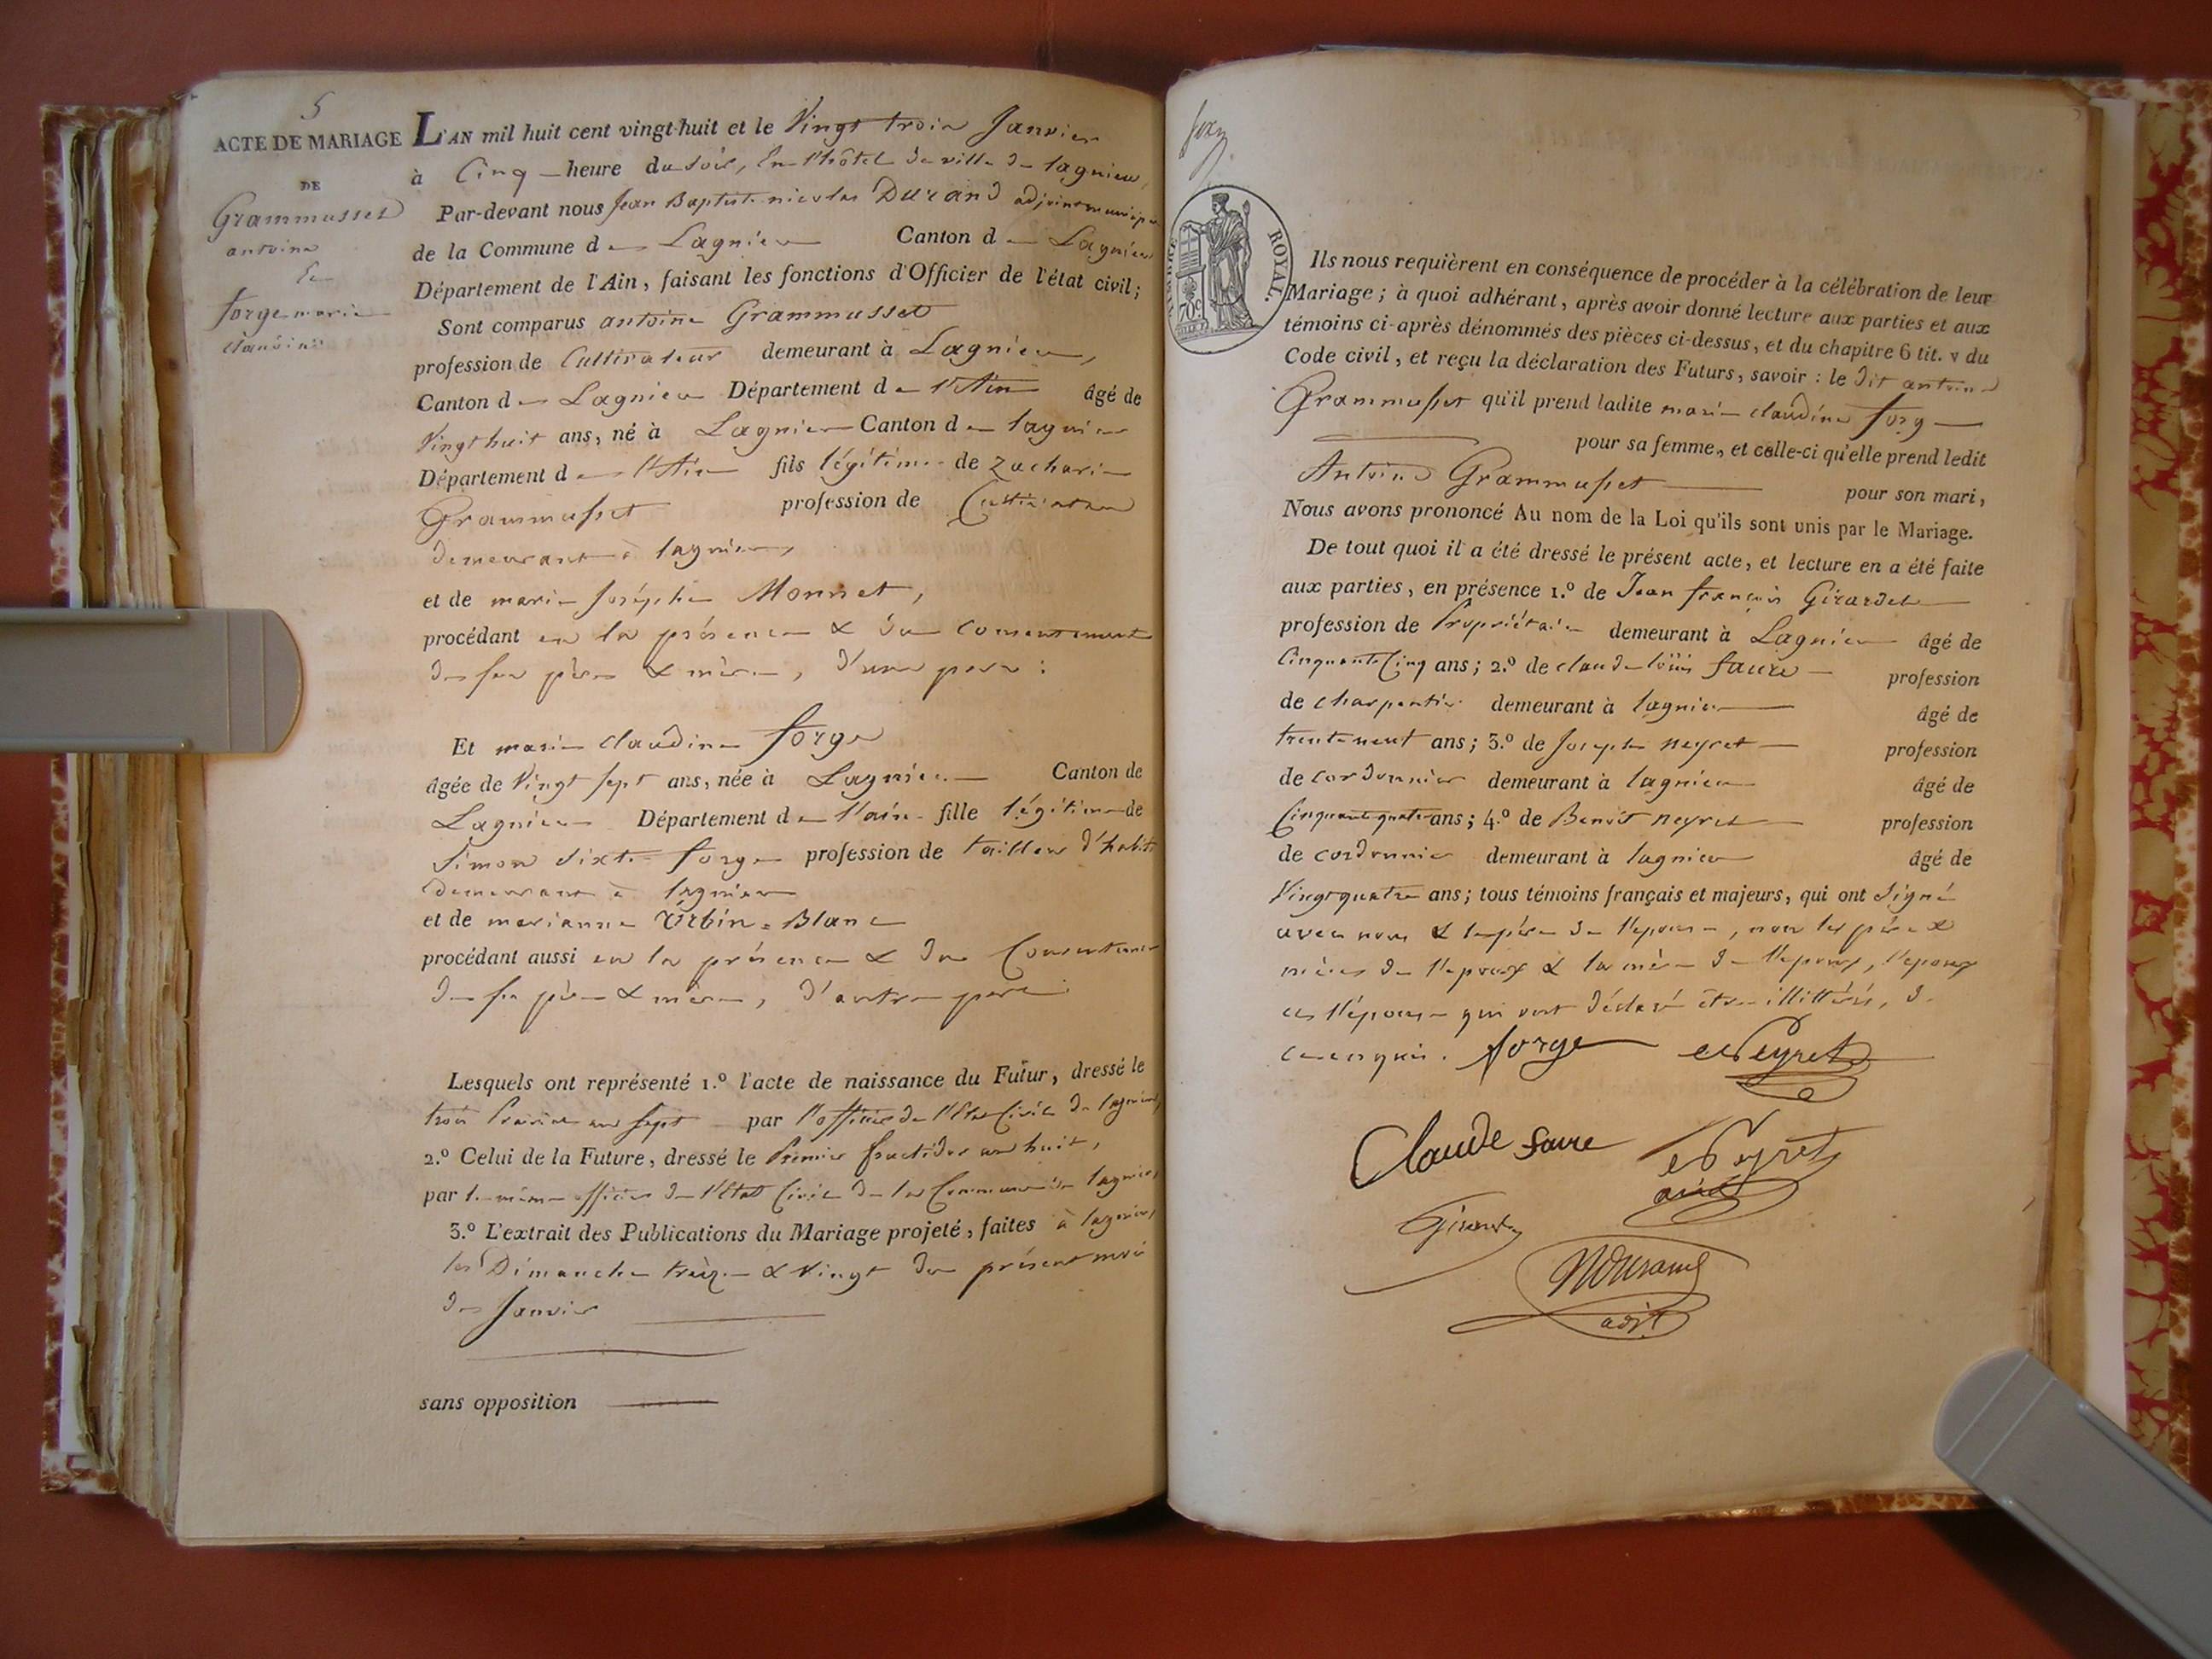 5
ACTE DE MARIAGE
DE
Grammusset
antoine
Et
forge marie
claudine
L'AN mil huit cent vingt-huit et le Vingt trois Janvier
à Cinq heure du soir, En l'hôtel de ville de lagnieu,
Par-devant nous Jean Baptiste nicolas Durand adjoint municipal
de la Commune de Lagnieu Canton de Lagnieu
Département de l'Ain, faisant les fonctions d'Officier de l'état civil;
Sont comparus antoine Grammusset
profession de Cultivateur demeurant à Lagnieu,
Canton de Lagnieu Département de l'Ain âgé de
Vingt huit ans, né à Lagnieu Canton de lagnieu
Département de l'Ain fils légitime de zacharie
Grammusset profession de Cultivateur
demeurant à lagnieu,
et de marie Joséphe Monnet,
procédant en la présence & du consentement
de ses père & mère, d'une part :
Et marie claudine forge
âgée de Vingt sept ans, née à Lagnieu Canton de
Lagnieu Département de l'ain fille légitime de
Simon Sixte forge profession de tailleur d'habits
demeurant à lagnieu
et de marianne Urbin = Blanc
procédant aussi en la présence & du Consentement
de ses père & mère, d'autre part
Lesquels ont représenté 1.º l'acte de naissance du Futur, dressé le
trois Prairial an sept par l'officier de l'Etat Civil de lagnieu,
2.º Celui de la Future, dressé le Premier fructidor an huit,
par le même officier de l'Etat Civil de la Commune de lagnieu,
3.º L'extrait des Publications du Mariage projeté, faites à lagnieu,
les Dimanche treize & Vingt du présent mois
de Janvier
sans opposition
TIMBRE ROYAL.
70c
Ils nous requièrent en conséquence de procéder à la célébration de leur
Mariage; à quoi adhérant, après avoir donné lecture aux parties et aux
témoins ci-après dénommés des pièces ci-dessus, et du chapitre 6 tit. v du
Code civil, et reçu la déclaration des Futurs, savoir : le dit antoine
Grammusset qu'il prend ladite marie claudine forg
pour sa femme, et celle-ci qu'elle prend ledit
Antoine Grammusset pour son mari,
Nous avons prononcé Au nom de la Loi qu'ils sont unis par le Mariage.
De tout quoi il a été dressé le présent acte, et lecture en a été faite
aux parties, en présence 1.º de Jean françois Girardet
profession de Propriétaire demeurant à Lagnieu âgé de
Cinquante Cinq ans; 2.º de claude loüis faure profession
de charpentier demeurant à lagnieu âgé de
trente neuf ans; 3.º de Joseph neyret profession
de cordonnier demeurant à lagnieu âgé de
Cinquante quatre ans; 4.º de Benoit neyret profession
de cordonnier demeurant à lagnieu âgé de
Vingt quatre ans; tous témoins français et majeurs, qui ont signé
avec nous & le père de l'épouse, non les père &
mères de l'epoux & la mère de l'epouse, l'epoux
et l'épouse qui ont déclaré être illittérés, de
ce enquis. forge Neyret
Claude faure Neyret
ainé
Girardet
NDurand
adjt